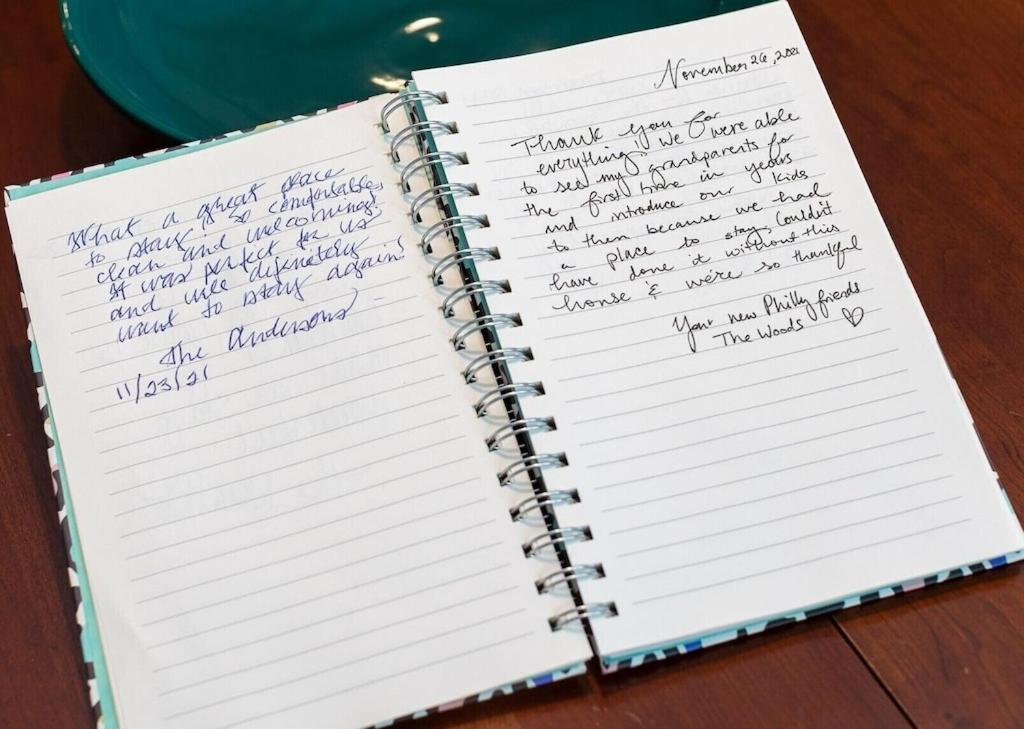 What a great place
to stay! so comfortable,
clean and welcoming!
It was perfect for us
and will definetely
want to stay again!
The Andersons
11/23/21
November 26, 2021
Thank you for
everything! We were able
to see my grandparents for
the first time in years
and introduce our kids
to them because we had
a place to stay. Couldn't
have done it without this
house & we're so thankful
Your new Philly friends
The Woods ♡